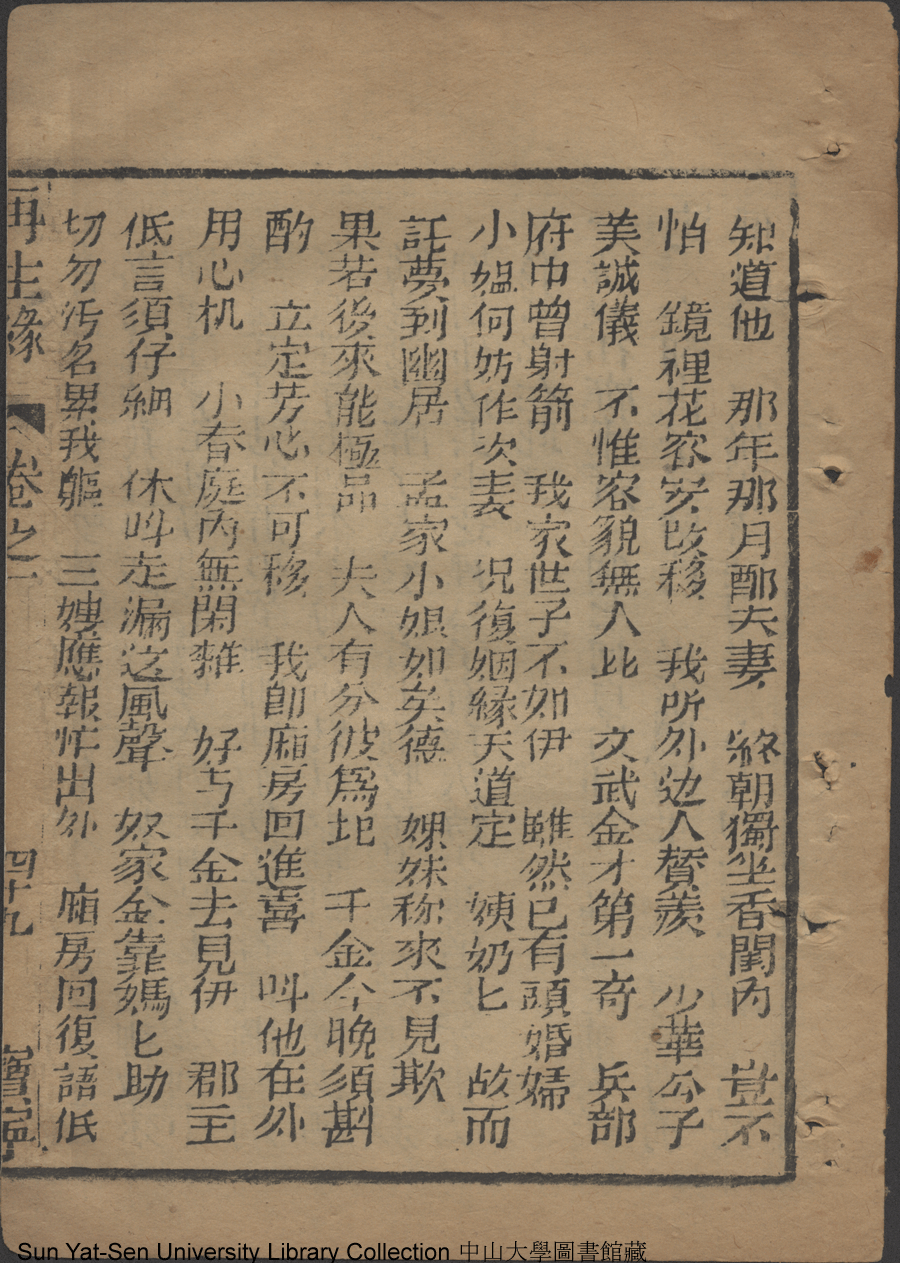 知道他　那年那月酈夫妻　終朝獨坐香閨內　豈不
怕　鏡裡花容安改移　我听外边人賛羨　少華公子
美誠儀　不惟容貌無人比　文武金才第一奇　兵部
府中曾射箭　我家世子不如伊　雖然已有頭婚婦
小媼何妨作次妻　况復姻緣天道定　姨奶匕　故而
託夢到幽居　孟家小姐如矣德　姐妹称來不見欺
果若後來能極品　夫人有分彼爲地　千金今晚須斟
酌　立定芳心不可移　我即廂房回進喜　叫他在外
用心机　小春庭內無閑雜　好与千金去見伊　郡主
低言須仔細　休呌走漏这風聲　奴家金靠媽匕助
切勿汚名累我軀　三嫂應報忙出外　廂房回復語低
再生緣　卷之一　四十九　寶寧
Sun Yat-Sen University Library Collection 中山大學圖書館藏